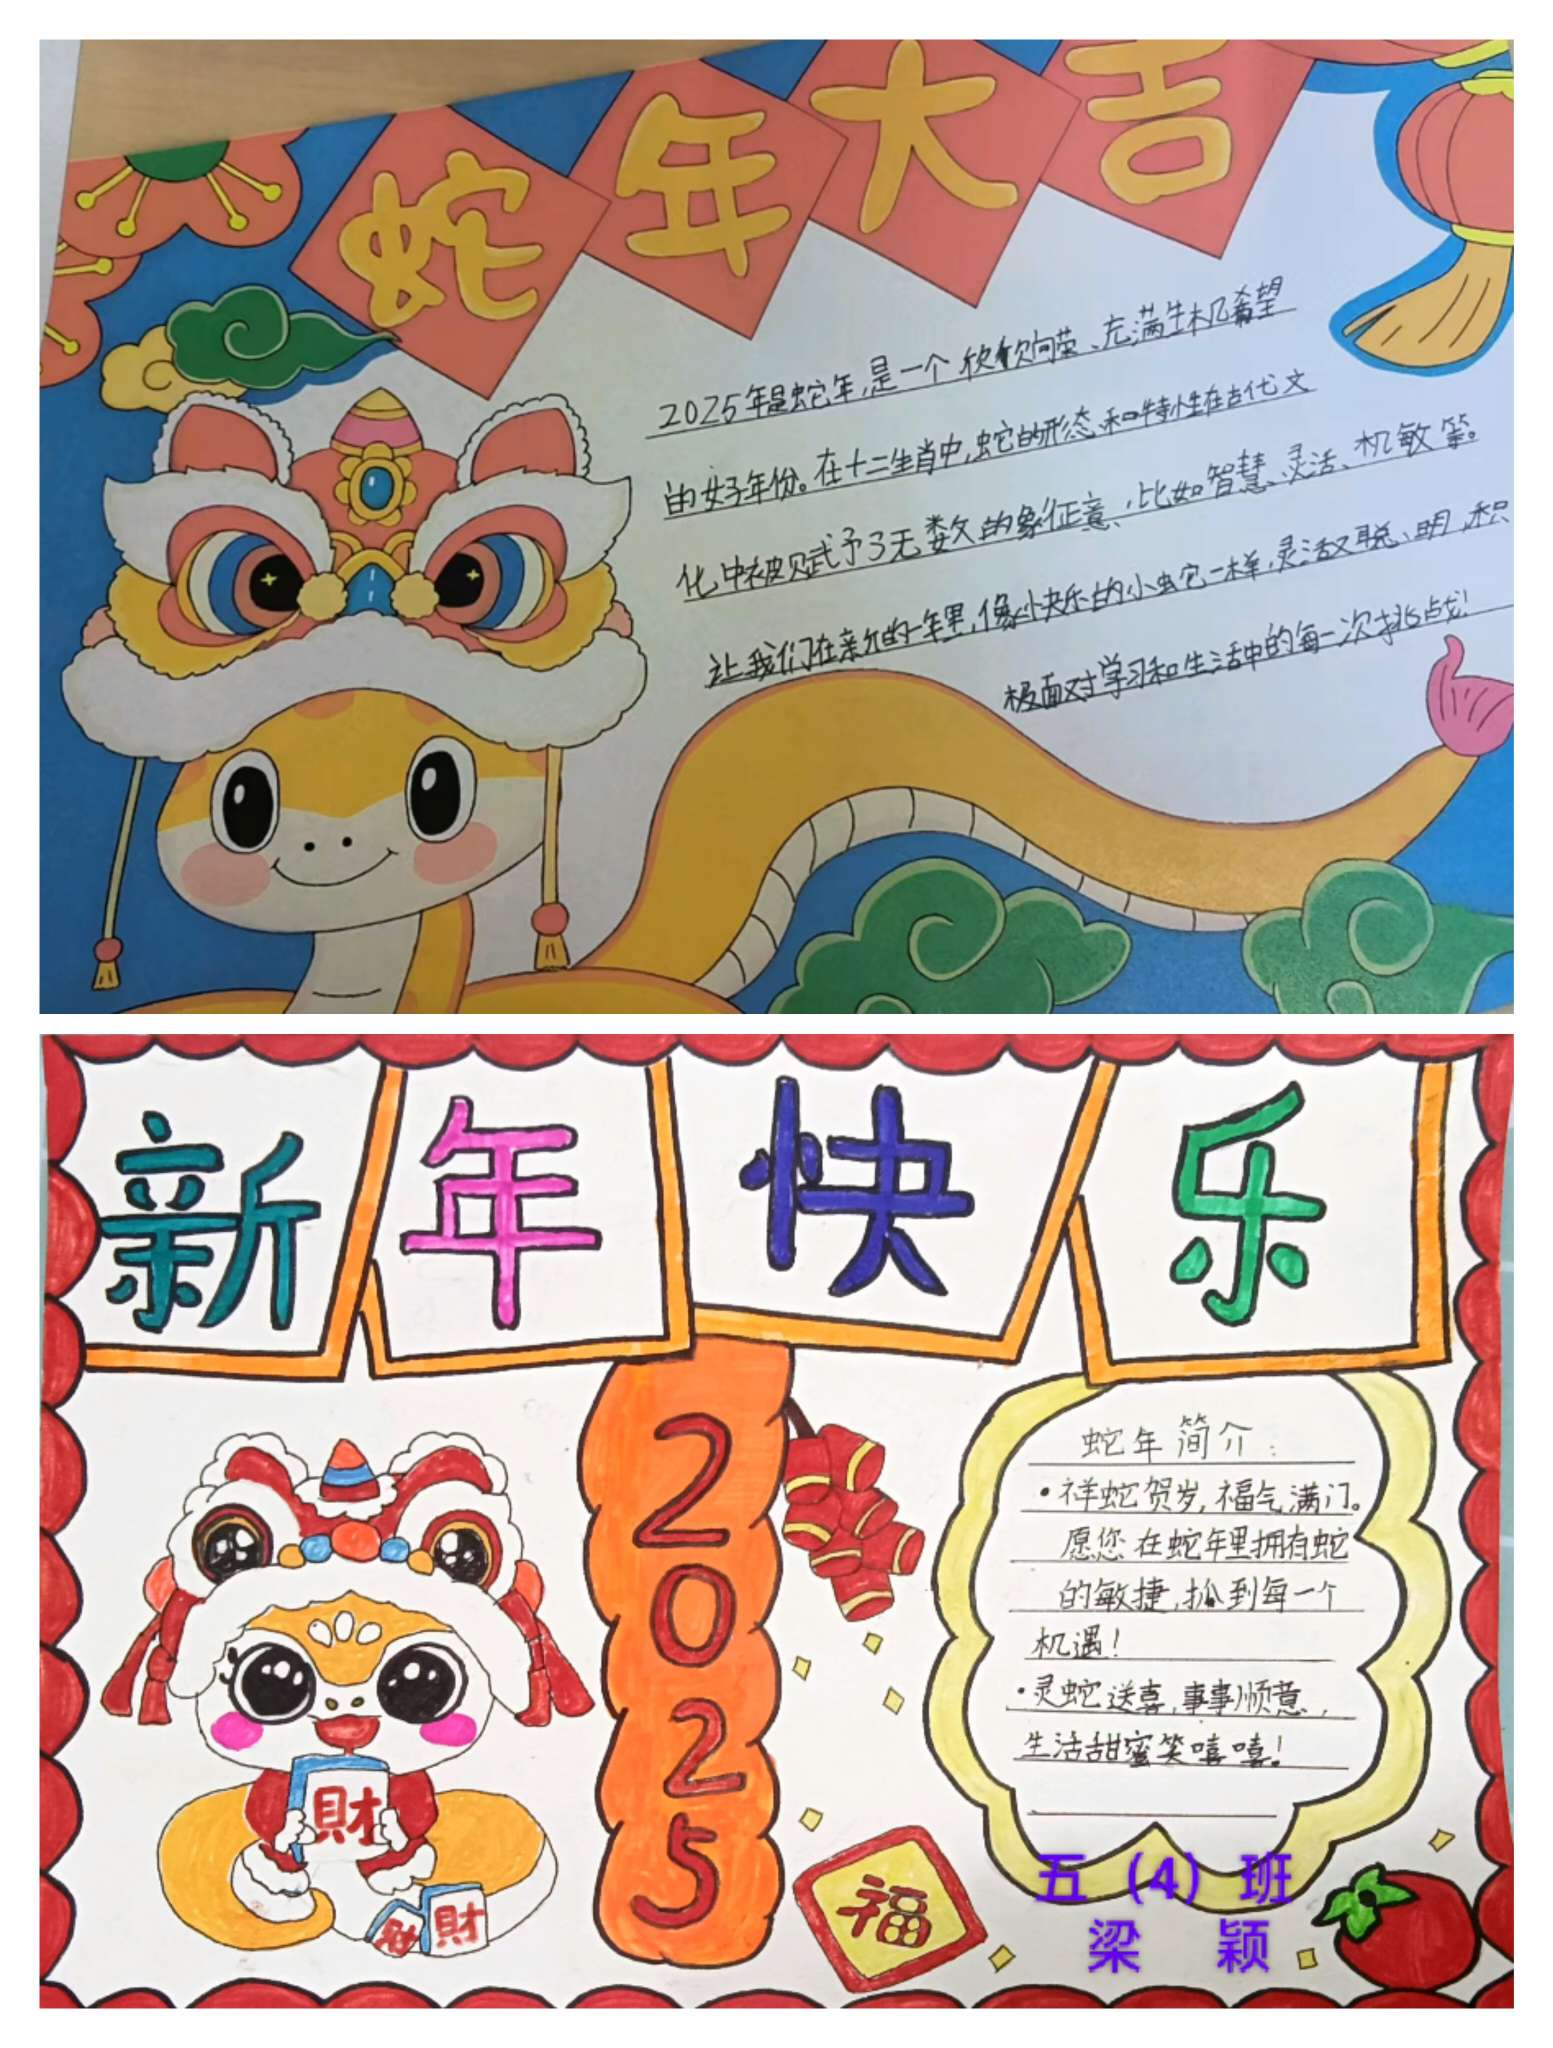 蛇年大吉
2025年是蛇年,是一个欣欣向荣、充满生机希望
的好年份。在十二生肖中,蛇的形态和特性在古代文
化中被赋予了无数的象征意、比如智慧、灵活、机敏等。
让我们在新的一年里,像小快乐的小蛇一样,灵活又聪明,积
极面对学习和生活中的每一次挑战!
新年快乐
2025
蛇年简介:
•祥蛇贺岁,福气满门。
愿您在蛇年里拥有蛇
的敏捷,抓到每一个
机遇!
•灵蛇送喜,事事顺意,
生活甜蜜笑嘻嘻!
財
財
財
福
五(4)班
梁颖